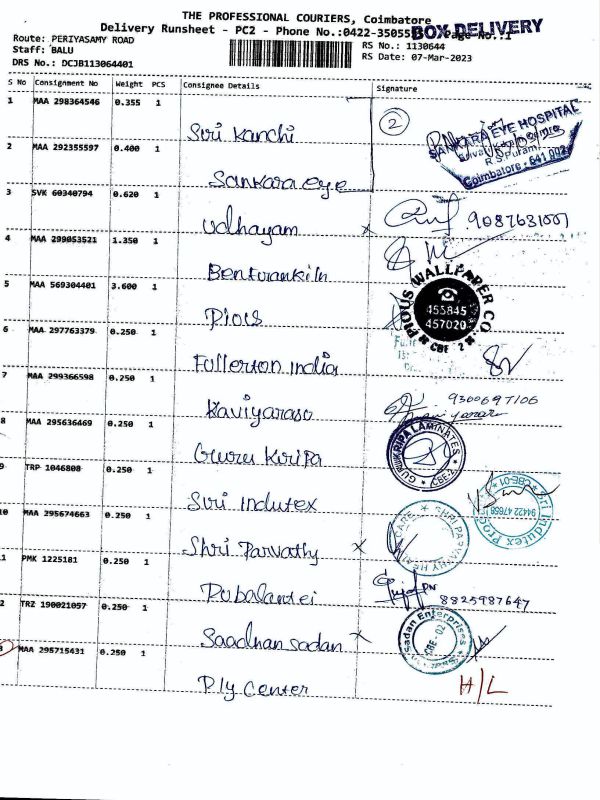 THE PROFESSIONAL COURIERS, Coimbatore
Delivery Runsheet - PC2 - Phone No.:0422-35055 Page No.:1
BOX DELIVERY
Route: PERIYASAMY ROAD
RS No.: 1130644
Staff: BALU
RS Date: 07-Mar-2023
DRS No.: DCJB113064401
S No Consignment No Weight PCS Consignee Details Signature
1 MAA 298364546 0.355 1
Sri Kanchi
2
SANKARA EYE HOSPITAL
R.S.Puram,
Coimbatore - 641 002
2 MAA 292355597 0.400 1
Sankara eye
3 SVK 60340794 0.620 1
Udhayam x 9087631001
4 MAA 299053521 1.350 1
5 MAA 569304401 3.600 1
Pious
PIOUS WALLPAPER CO.
455845
457020
CBE 2
6 MAA 297763379 0.250 1
Fullerton India
7 MAA 299366598 0.250 1
Kaviyarasu
9300697106
8 MAA 295636469 0.250 1
Guru Kiripa
GURU KIRIPA LAMINATES
9 TRP 1046808 0.250 1
Sri Indutex
Sri Indutex
CBE-01
10 MAA 295674663 0.250 1
Shri Parvathy x
SHRI PARVATHY HEALTH CARE
11 PMK 1225181 0.250 1
8825987647
2 TRZ 190021057 0.250 1
Saadhan Sadan x
sadan Enterprises
CBE - 02
3 MAA 295715431 0.250 1
Ply Center
H/L